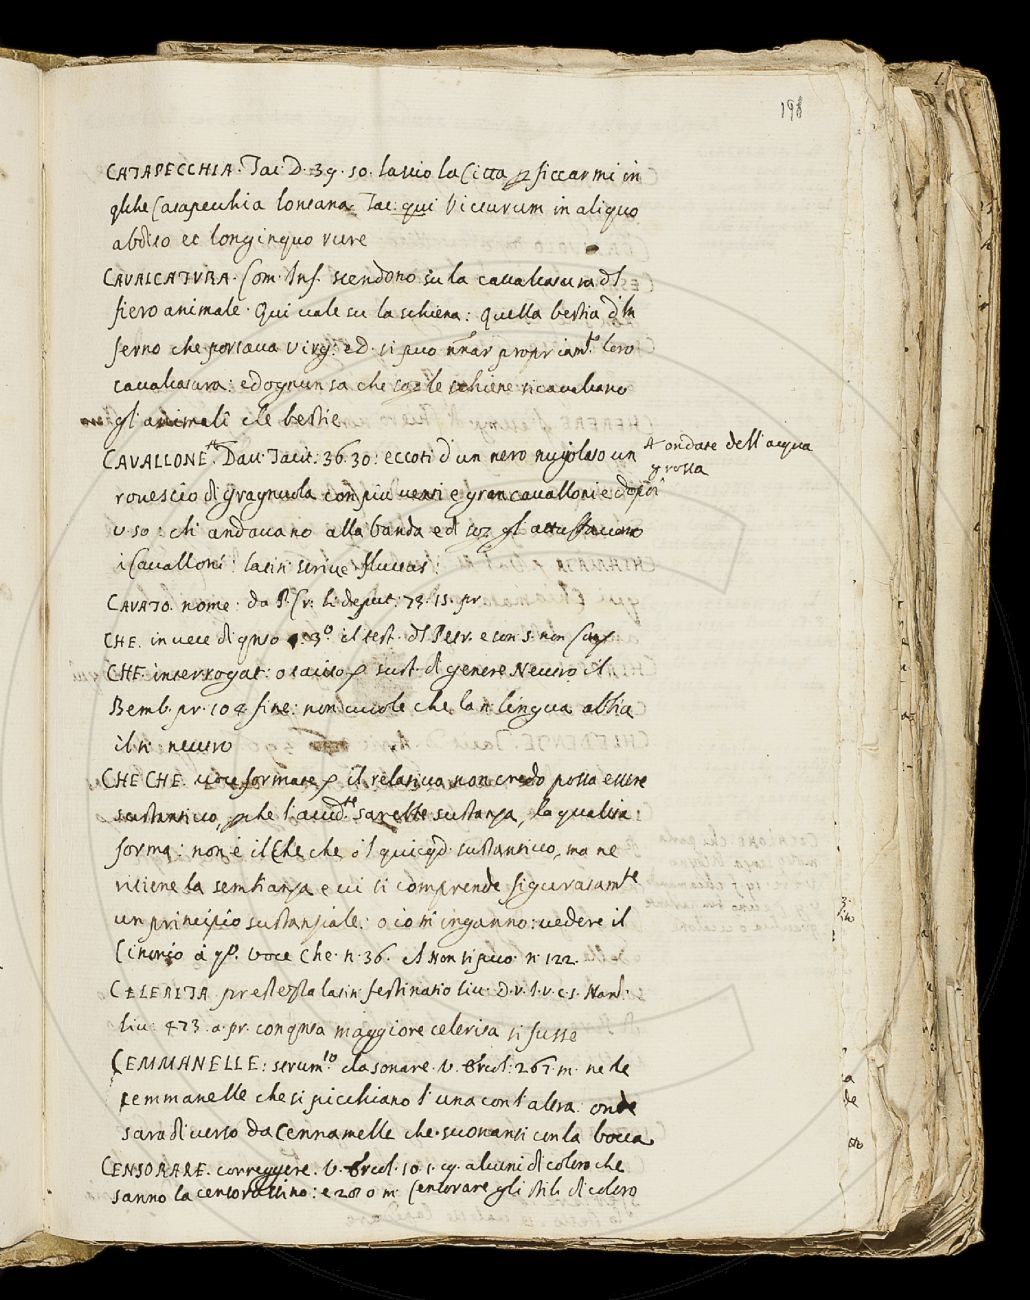 198
CATAPECCHIA. Tac. D. 39. 10. lascio la Citta p ficcarmi in
qlche Catapecchia lontana. Tac: qui victurum in aliquo
abdito et longinquo rure
CAVALCATURA. Com. Inf. scendono su la cavalcatura dl
fiero animale. Qui vale su la schiena: quella bestia d'In
ferno che portava Virg: ed si puo propriamte loro
cavalcatura: ed ognun sa che schiene si cavalcano
gl'animali e le bestie
CAVALLONE. Dav. Tacit: 36. 30: eccoti d'un nero nugolato un
+ ondate dell'acqua
grossa
rovescio di gragnuola con piu venti e gran cavalloni e
uso: ch' andavano alla banda ed gl'attuffavano
i Cavalloni: latin scrive fluctus:
CAVATO. nome: da li deput: 73. 15. pr
CHE. in vece di 3o il test. dl Petr. e con s. non
CHE. interrogat: o tacito p sust. di genere Neutro il
Bemb. pr. 104 fine: non vuole che la n: lingua abbia
il n: neutro
CHE CHE. voce formate p il relativo non credo possa essere
sustantivo, pche l'aud.te sarebbe sustanza, la qualita
forma: non è il Che che o'l sustantivo, ma ne
ritiene la sembianza e vi si comprende figuratamte
un principio sustanziale: o io m'inganno: vedere il
Cinonio à voce Che. n. 36. Non si puo n. 122.
CELERITA. prestezza latin festinatio Liv: D. v. l. v. c. s. Nard:
Liv: 473. a. pr. con maggiore celerita si fusse
CEMMANELLE: strum.to da sonare. V. Ercol: 267. m. ne le
cemmanelle che si picchiano l'una con l'altra. onde
sara diverso da Cennamelle che suonansi con la bocca
CENSORARE. correggere. V. Ercol. 10 alcuni di coloro che
fanno la censoratino: e 280 m. Censorare gli stili di coloro